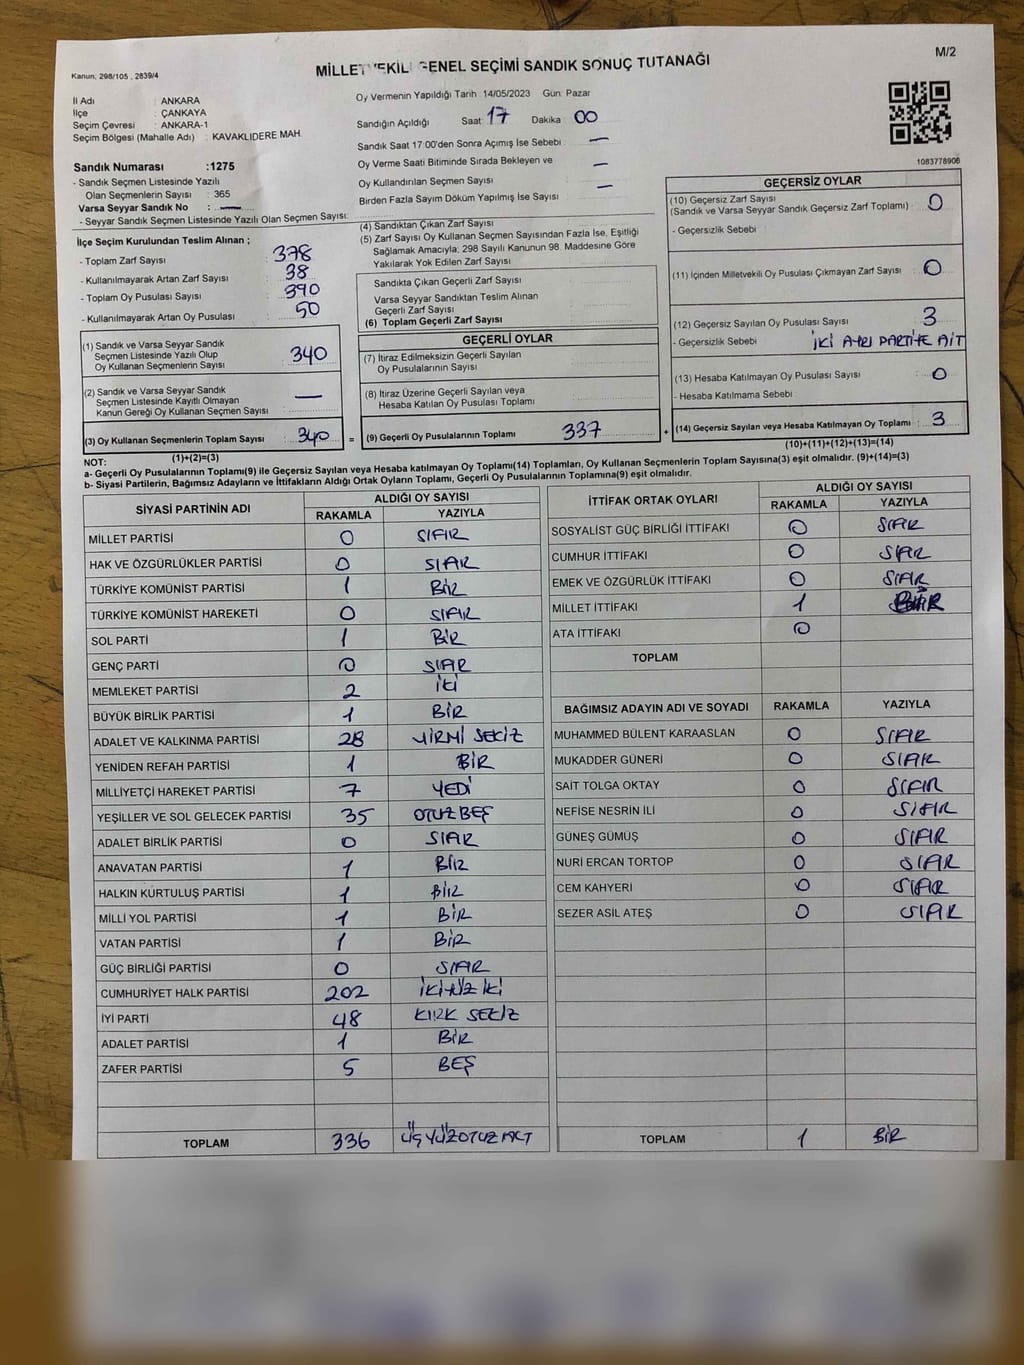 M/2
Kanun; 298/105 , 2839/4
MİLLETVEKİLİ GENEL SEÇİMİ SANDIK SONUÇ TUTANAĞI
İl Adı : ANKARA
İlçe : ÇANKAYA
Seçim Çevresi : ANKARA-1
Seçim Bölgesi (Mahalle Adı) : KAVAKLIDERE MAH.
Oy Vermenin Yapıldığı Tarih 14/05/2023 Gün: Pazar
Sandığın Açıldığı Saat 17 Dakika 00
Sandık Saat 17:00'den Sonra Açımış İse Sebebi : —
Oy Verme Saati Bitiminde Sırada Bekleyen ve
Oy Kullandırılan Seçmen Sayısı : —
Birden Fazla Sayım Döküm Yapılmış İse Sayısı : —
1083778906
Sandık Numarası :1275
- Sandık Seçmen Listesinde Yazılı
Olan Seçmenlerin Sayısı : 365
Varsa Seyyar Sandık No : —
- Seyyar Sandık Seçmen Listesinde Yazılı Olan Seçmen Sayısı:
İlçe Seçim Kurulundan Teslim Alınan ;
- Toplam Zarf Sayısı : 378
- Kullanılmayarak Artan Zarf Sayısı : 38
- Toplam Oy Pusulası Sayısı : 390
- Kullanılmayarak Artan Oy Pusulası : 50
(1) Sandık ve Varsa Seyyar Sandık
Seçmen Listesinde Yazılı Olup
Oy Kullanan Seçmenlerin Sayısı : 340
(2) Sandık ve Varsa Seyyar Sandık
Seçmen Listesinde Kayıtlı Olmayan
Kanun Gereği Oy Kullanan Seçmen Sayısı : —
(3) Oy Kullanan Seçmenlerin Toplam Sayısı : 340 =
(1)+(2)=(3)
(4) Sandıktan Çıkan Zarf Sayısı
(5) Zarf Sayısı Oy Kullanan Seçmen Sayısından Fazla İse, Eşitliği
Sağlamak Amacıyla; 298 Sayılı Kanunun 98. Maddesine Göre
Yakılarak Yok Edilen Zarf Sayısı
Sandıkta Çıkan Geçerli Zarf Sayısı
Varsa Seyyar Sandıktan Teslim Alınan
Geçerli Zarf Sayısı
(6) Toplam Geçerli Zarf Sayısı
GEÇERLİ OYLAR
(7) İtiraz Edilmeksizin Geçerli Sayılan
Oy Pusulalarının Sayısı
(8) İtiraz Üzerine Geçerli Sayılan veya
Hesaba Katılan Oy Pusulası Toplamı
(9) Geçerli Oy Pusulalarının Toplamı 337 +
GEÇERSİZ OYLAR
(10) Geçersiz Zarf Sayısı
(Sandık ve Varsa Seyyar Sandık Geçersiz Zarf Toplamı) : 0
- Geçersizlik Sebebi
(11) İçinden Milletvekili Oy Pusulası Çıkmayan Zarf Sayısı : 0
(12) Geçersiz Sayılan Oy Pusulası Sayısı : 3
- Geçersizlik Sebebi : İKİ AYRI PARTİYE AİT
(13) Hesaba Katılmayan Oy Pusulası Sayısı : 0
- Hesaba Katılmama Sebebi
(14) Geçersiz Sayılan veya Hesaba Katılmayan Oy Toplamı : 3
(10)+(11)+(12)+(13)=(14)
NOT:
a- Geçerli Oy Pusulalarının Toplamı(9) ile Geçersiz Sayılan veya Hesaba katılmayan Oy Toplamı(14) Toplamları, Oy Kullanan Seçmenlerin Toplam Sayısına(3) eşit olmalıdır. (9)+(14)=(3)
b- Siyasi Partilerin, Bağımsız Adayların ve İttifakların Aldığı Ortak Oyların Toplamı, Geçerli Oy Pusulalarının Toplamına(9) eşit olmalıdır.
SİYASİ PARTİNİN ADI ALDIĞI OY SAYISI
RAKAMLA YAZIYLA
MİLLET PARTİSİ 0 SIFIR
HAK VE ÖZGÜRLÜKLER PARTİSİ 0 SIFIR
TÜRKİYE KOMÜNİST PARTİSİ 1 BİR
TÜRKİYE KOMÜNİST HAREKETİ 0 SIFIR
SOL PARTİ 1 BİR
GENÇ PARTİ 0 SIFIR
MEMLEKET PARTİSİ 2 İKİ
BÜYÜK BİRLİK PARTİSİ 1 BİR
ADALET VE KALKINMA PARTİSİ 28 YİRMİ SEKİZ
YENİDEN REFAH PARTİSİ 1 BİR
MİLLİYETÇİ HAREKET PARTİSİ 7 YEDİ
YEŞİLLER VE SOL GELECEK PARTİSİ 35 OTUZ BEŞ
ADALET BİRLİK PARTİSİ 0 SIFIR
ANAVATAN PARTİSİ 1 BİR
HALKIN KURTULUŞ PARTİSİ 1 BİR
MİLLİ YOL PARTİSİ 1 BİR
VATAN PARTİSİ 1 BİR
GÜÇ BİRLİĞİ PARTİSİ 0 SIFIR
CUMHURİYET HALK PARTİSİ 202 İKİ YÜZ İKİ
İYİ PARTİ 48 KIRK SEKİZ
ADALET PARTİSİ 1 BİR
ZAFER PARTİSİ 5 BEŞ
TOPLAM 336 ÜÇ YÜZ OTUZ ALT
İTTİFAK ORTAK OYLARI ALDIĞI OY SAYISI
RAKAMLA YAZIYLA
SOSYALİST GÜÇ BİRLİĞİ İTTİFAKI 0 SIFIR
CUMHUR İTTİFAKI 0 SIFIR
EMEK VE ÖZGÜRLÜK İTTİFAKI 0 SIFIR
MİLLET İTTİFAKI 1 BİR
ATA İTTİFAKI 0
TOPLAM
BAĞIMSIZ ADAYIN ADI VE SOYADI RAKAMLA YAZIYLA
MUHAMMED BÜLENT KARAASLAN 0 SIFIR
MUKADDER GÜNERİ 0 SIFIR
SAİT TOLGA OKTAY 0 SIFIR
NEFİSE NESRİN İLİ 0 SIFIR
GÜNEŞ GÜMÜŞ 0 SIFIR
NURİ ERCAN TORTOP 0 SIFIR
CEM KAHYERİ 0 SIFIR
SEZER ASİL ATEŞ 0 SIFIR
TOPLAM 1 BİR